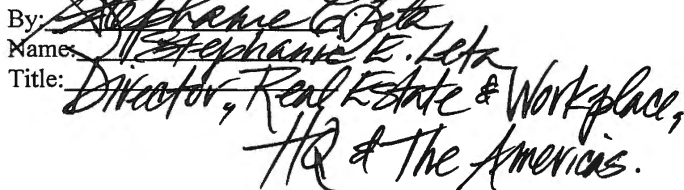 By: Stephanie E. Leta
Name: Stephanie E. Leta
Title: Director, Real Estate & Workplace,
HQ & The Americas.